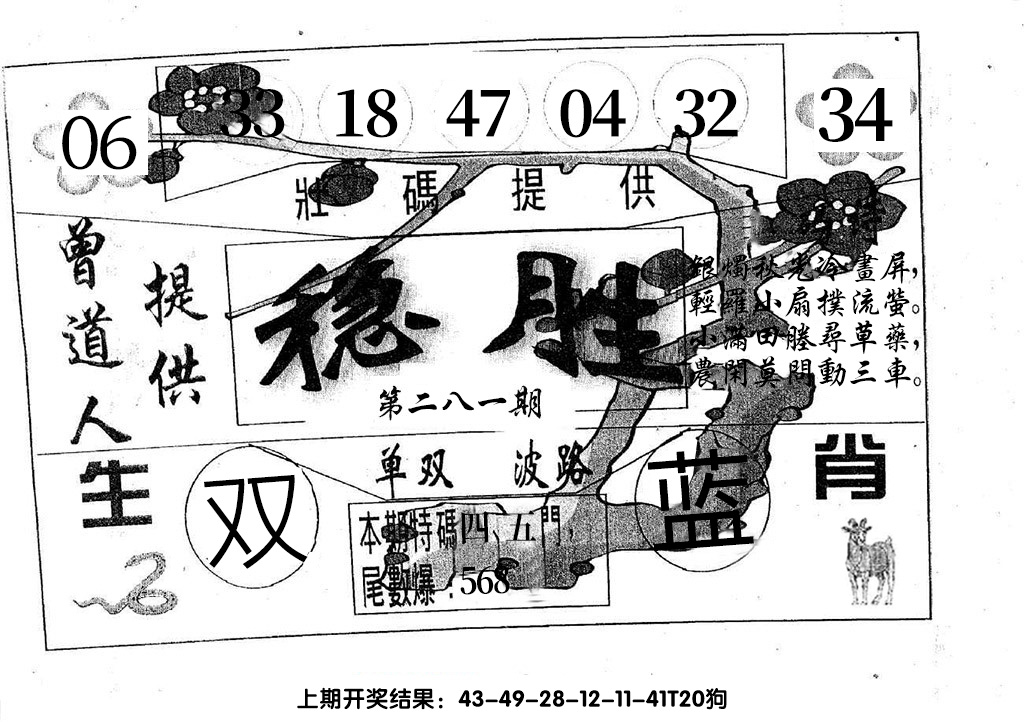 06 33 18 47 04 32 34
壯碼提供
特
曾道人
提供
稳胜
第二八一期
銀燭秋光冷畫屏，
輕羅小扇撲流螢。
小滿田塍尋草藥，
農閑莫問動三車。
单双 波路
生
双
蓝
肖
本期特碼四、五門，
尾數爆：568
上期开奖结果：43-49-28-12-11-41T20狗